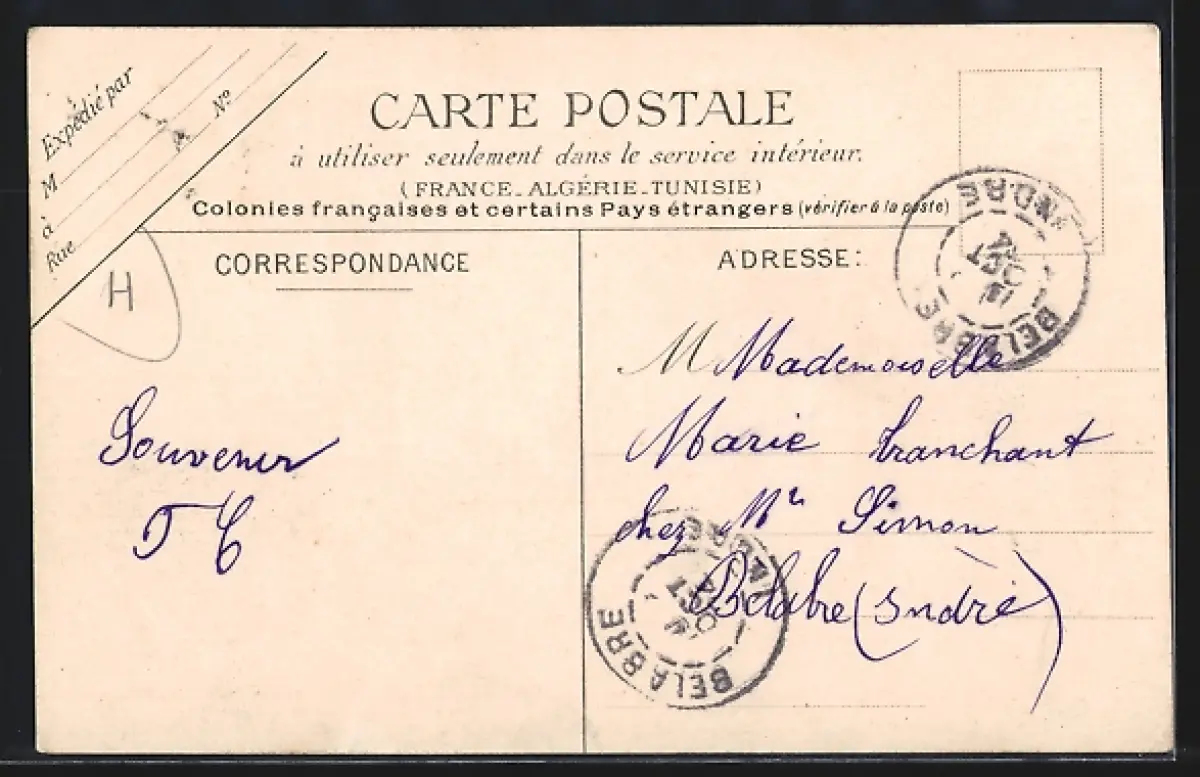 Expédié par
M
à
Rue Nº
CARTE POSTALE
à utiliser seulement dans le service intérieur.
(FRANCE-ALGÉRIE-TUNISIE)
Colonies françaises et certains Pays étrangers (vérifier à la poste)
CORRESPONDANCE
H
Souvenir
T C
ADRESSE:
M Mademoiselle
Marie Tranchant
chez Mr Simon
Belabre (Indre)
BELABRE
INDRE
OCT
BELABRE
INDRE
OCT